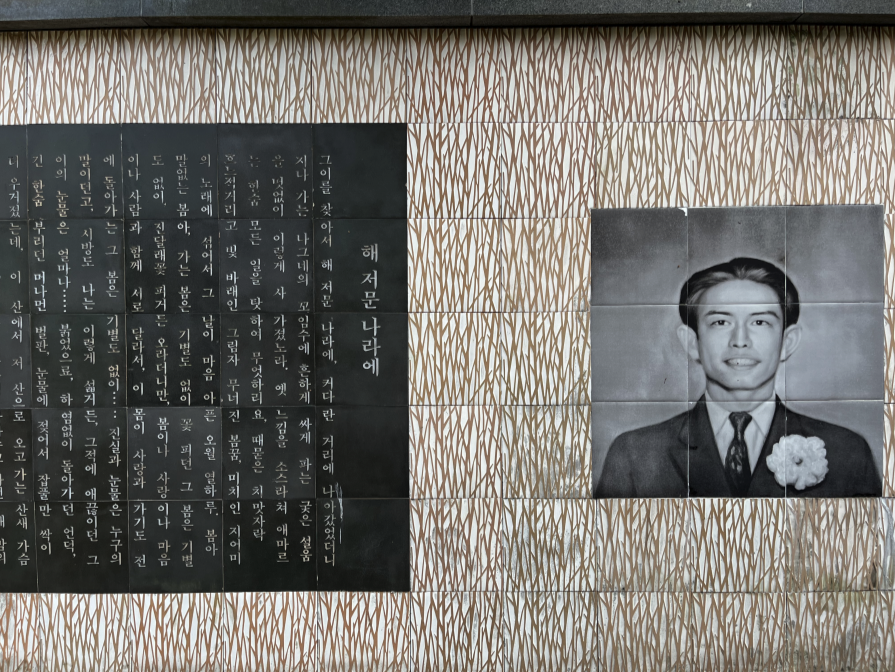 해 저문 나라에
그이를 찾아서 해 저문 나라에, 커다란 거리에 나아갔었더니
지나 가는 나그네의 꼬임수에 흔하게 싸게 파는 궂은 설움
을 멋없이 이렇게 사 가졌노라, 옛 느낌을 소스라쳐 애마르
는 한숨 모든 일을 탓하여 무엇하리요, 때묻은 치맛자락
흐느적거리고 빛 바래인 그림자 무너진 봄꿈 미치인 지이미
의 노래에 섞어서 그 날이 마음 아픈 오월 열하루. 봄아
말없는 봄아, 가는 봄은 기별도 없이 꽃 피던 그 봄은 기별
도 없이, 진달래꽃 피거든 오라더니만, 봄이나 사랑이나 마음
이나 사람과 함께 서로 달라서, 이 몸이 사랑과 가기도 전
에 돌아가는 그 봄은 기별도 없이…… 진실과 눈물은 누구의
말이던고, 시방도 나는 이렇게 섧거든, 그적에 애끊이던 그
이의 눈물은 얼마나…… 붉었으로, 하염없이 돌아가던 언덕,
긴 한숨 부리던 머나먼 벌판, 눈물에 젖어서 잡풀만 싹이
우거졌는데, 이 산에서 저 산으로 오고가는 산새 가슴